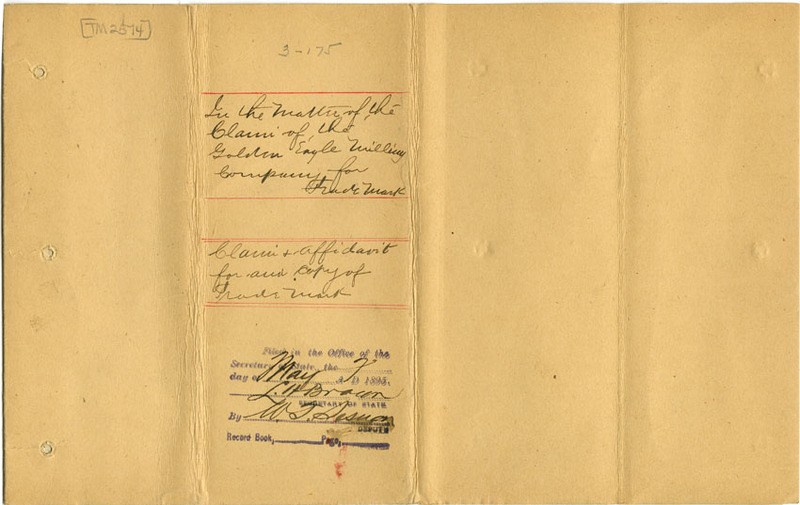 [TM2574]
3-175
In the Matter of the
Claim of the
Golden Eagle Milling
Company for
Trade Mark
Claim & Affidavit
for and Copy of
Trade Mark
Filed in the Office of the
Secretary of State, the 7
day of May A D 1895.
L. H. Brown
SECRETARY OF STATE
By W. T.
DEPUTY
Record Book, Page,